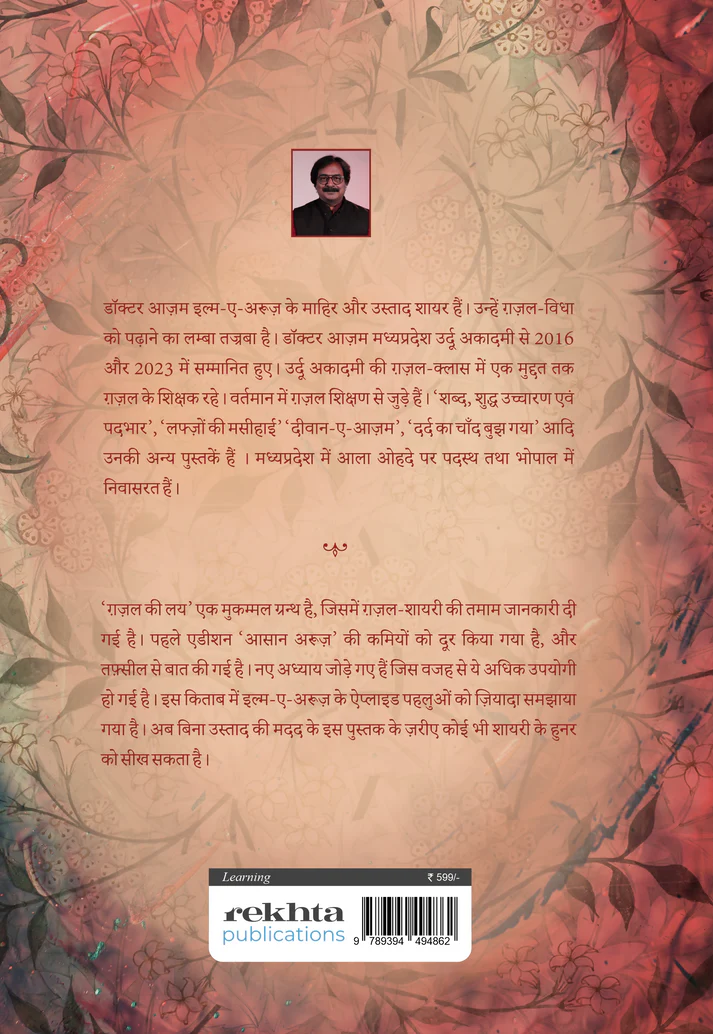 डॉक्टर आज़म इल्म-ए-अरूज़ के माहिर और उस्ताद शायर हैं। उन्हें ग़ज़ल-विधा
को पढ़ाने का लम्बा तज्रबा है। डॉक्टर आज़म मध्यप्रदेश उर्दू अकादमी से 2016
और 2023 में सम्मानित हुए। उर्दू अकादमी की ग़ज़ल-क्लास में एक मुद्दत तक
ग़ज़ल के शिक्षक रहे। वर्तमान में ग़ज़ल शिक्षण से जुड़े हैं। ‘शब्द, शुद्ध उच्चारण एवं
पदभार’, ‘लफ्ज़ों की मसीहाई’ ‘दीवान-ए-आज़म’, ‘दर्द का चाँद बुझ गया’ आदि
उनकी अन्य पुस्तकें हैं । मध्यप्रदेश में आला ओहदे पर पदस्थ तथा भोपाल में
निवासरत हैं।
‘ग़ज़ल की लय’ एक मुकम्मल ग्रन्थ है, जिसमें ग़ज़ल-शायरी की तमाम जानकारी दी
गई है। पहले एडीशन ‘आसान अरूज़’ की कमियों को दूर किया गया है, और
तफ़्सील से बात की गई है। नए अध्याय जोड़े गए हैं जिस वजह से ये अधिक उपयोगी
हो गई है। इस किताब में इल्म-ए-अरूज़ के ऐप्लाइड पहलुओं को ज़ियादा समझाया
गया है। अब बिना उस्ताद की मदद के इस पुस्तक के ज़रीए कोई भी शायरी के हुनर
को सीख सकता है।
Learning ₹ 599/-
rekhta
publications
9 789394 494862